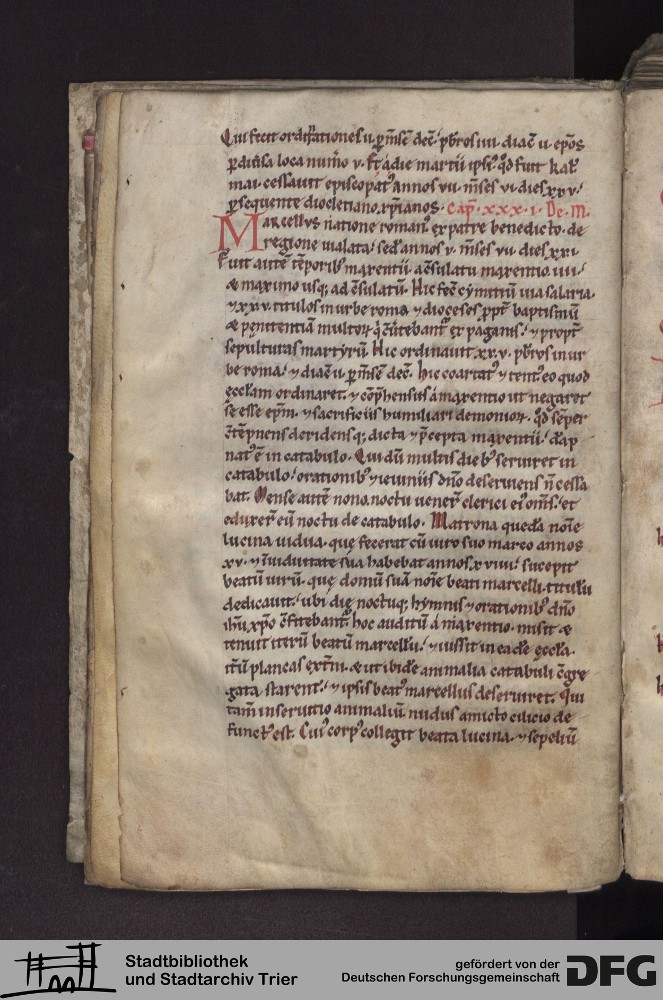 Qui fecit ordinationes u. p̄ m̄se deē. p̄bros iiii. diac̄ u. ep̄os
p diūsa loca num̄o v. Et a die martii ipsiꝰ qđ fuit kaƚ
mai. cessauit episcopatꝰ annos vii. m̄ses vi. dies xxv.
psequente diocletiano xp̄ianos. cap̄. xxx.i. De. m.
Marcellvs natione romanꝰ ex patre benedicto. de
regione uialata. sed̄ annos v. m̄ses vii. dies xxi.
Fuit autē tēporibꝰ maxentii. a c̄sulatu maxentio. iiii.
& maximo usq; ad c̄sulatū. Hic fec̄ cymitriū uia salaria.
⁊ xxv. titulos in urbe roma ⁊ dioceses p̄pt̄ baptismū
& pęnitentiā multoꝝ q̄ c̄uertebant̄ ex paganis. ⁊ propt̄
sepulturas martyrū. Hic ordinauit xxv. p̄bros in ur
be roma. ⁊ diac̄ u. p̄ m̄se deē. hic coartatꝰ ⁊ tentꝰ eo quod
ęcclam ordinaret. ⁊ cōp̄hensus á maxentio ut negaret
se esse ep̄m. ⁊ sacrificiis humiliari demonioꝝ. qđ sēper
c̄tēpnens deridens q; dicta ⁊ p̄cepta maxentii. dāp
natꝰ ē in catabulo. Qui dū multis diebꝰ seruiret in
catabulo. orationibꝰ ⁊ ieiuniis dn̄o deseruiens n̄ cessa
bat. Mense autē nono. noctu uener̄ clerici eiꝰ om̄s. et
eduxer̄ eū noctu de catabulo. Matrona queda nōie
lucina uidua. quę fecerat cū uiro suo marco annos
xv. ⁊ in uiduitate sua habebat annos xviiii. suscepit
beatū uirū. quę domū suā nōie beati marcelli. titulū
dedicauit. ubi die noctuq; hymnis ⁊ orationibꝰ dn̄o
ihū xp̄o c̄fitebant̄. hoc auditū á maxentio. misit &
tenuit iterū beatū marcellū. ⁊ iussit in eadē ęccla.
it̄ū plancas ext̄ni. & ut ibidē animalia catabuli c̄gre
gata starent. ⁊ ipsis beatꝰ marcellus deseruiret. Qui
tam̄ in seruitio animaliū nudus amicto cilicio de
functꝰ est. Cuiꝰ corpꝰ collegit beata lucina. ⁊ sepeliū
Stadtbibliothek
und Stadtarchiv Trier
gefördert von der
Deutschen Forschungsgemeinschaft
DFG